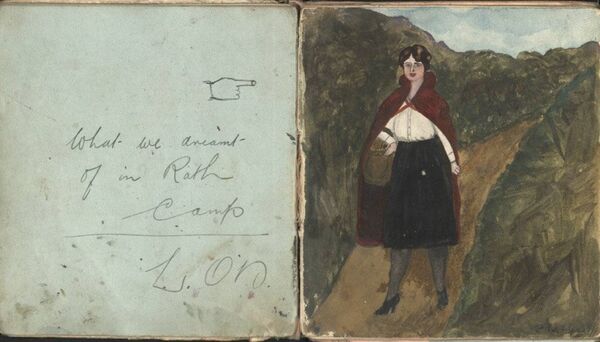 What we dreamt
of in Rath
Camp
L. O'D.